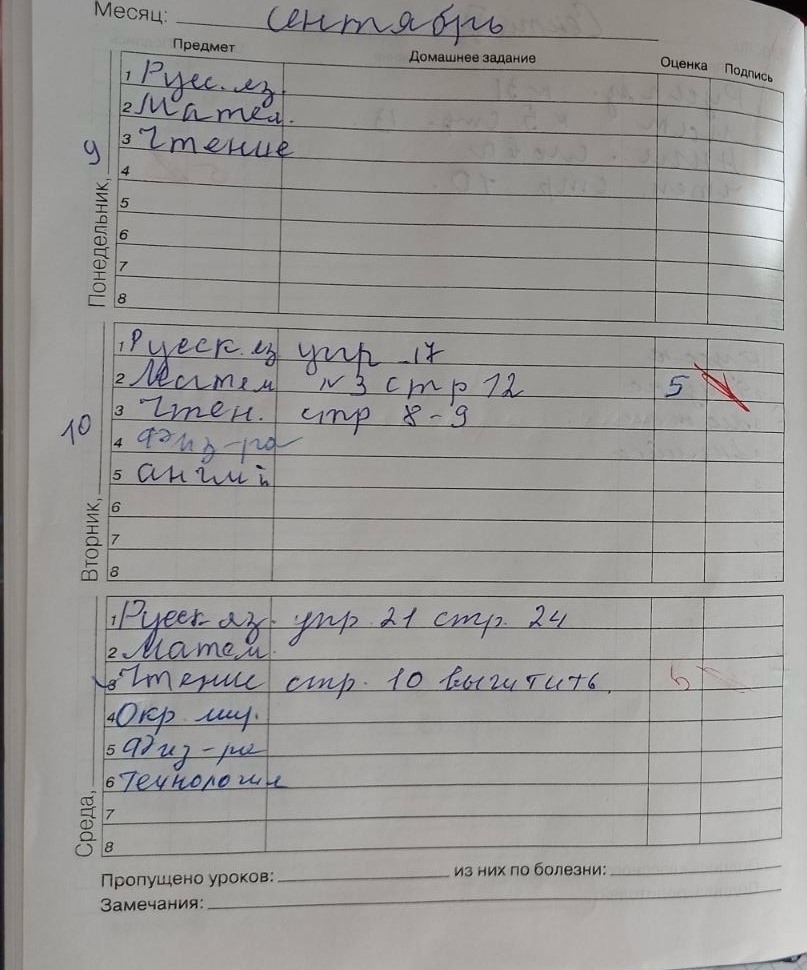 Месяц: сентябрь
Предмет Домашнее задание Оценка Подпись
Понедельник, 9
1 Русс. яз.
2 Матем.
3 Чтение
4
5
6
7
8
Вторник, 10
1 Русск. яз упр 17
2 Матем №3 стр 12 5
3 Чтен. стр 8-9
4 Физ-ра
5 англ й
6
7
8
Среда,
1 Русск яз. упр. 21 стр. 24
2 Матем.
3 Чтение стр. 10 вычитить. 5
4 Окр. мир.
5 Физ-ра
6 Технология
7
8
Пропущено уроков: из них по болезни:
Замечания: